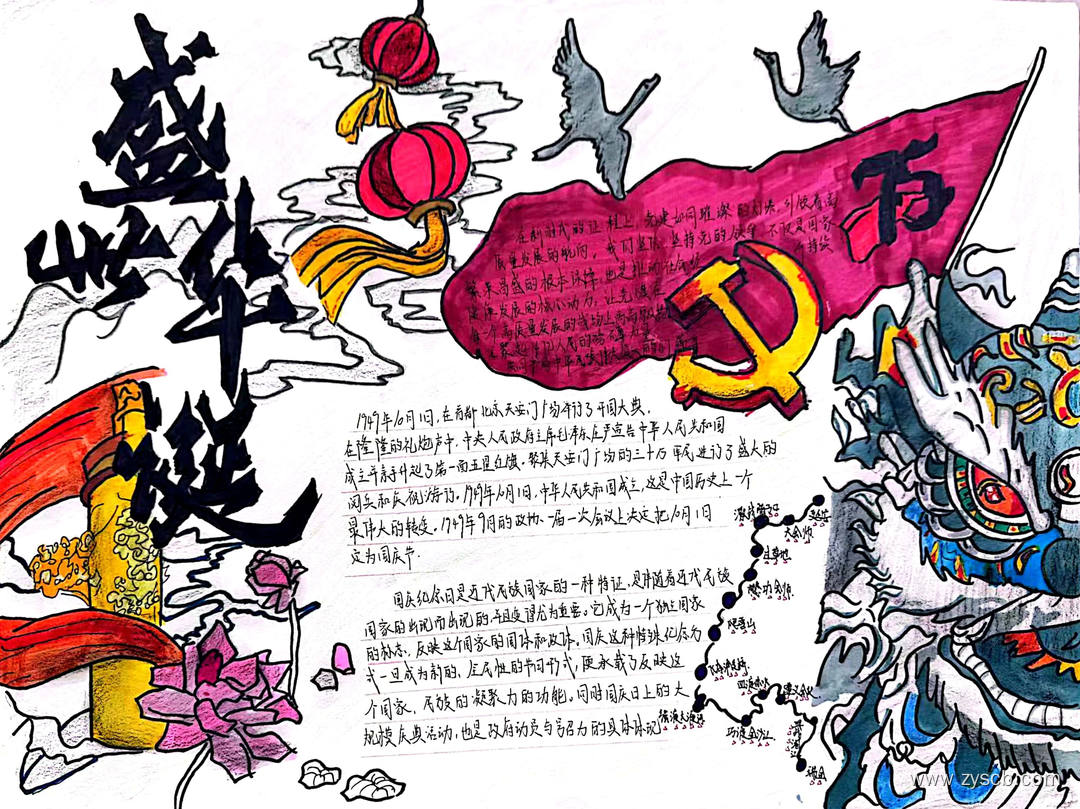 盛世华诞
75
在新时代的征程上,党建如同璀璨的灯火,引领着高
质量发展的航向。我们坚队坚持党的领导,不仅是国家
繁荣昌盛的根本保障,也是推动社会
健康发展的核心动力。让党旗在
每一个高质量发展的战场上高高飘扬
1949年10月1日,在首都北京天安门广场举行了开国大典,
在隆隆的礼炮声中,中央人民政府主席毛泽东庄严宣告中华人民共和国
成立并亲手升起了第一面五星红旗。聚集天安门广场的三十万军民进行了盛大的
阅兵和庆祝游行。1949年10月1日,中华人民共和国成立,这是中国历史上一个
最伟大的转变。1949年9月的政协一届一次会议上决定把10月1日
定为国庆节.
国庆纪念日是近代民族国家的一种特征,是伴随着近代民族
国家的出现而出现的并且变得尤为重要。它成为一个独立国家
的标志,反映这个国家的国体和政体。国庆这种特殊纪念方
式一旦成为新的、全民性的节日形式,便承载了反映这
个国家、民族的凝聚力的功能。同时国庆日上的大
规模庆典活动,也是政府动员与号召力的具体体现
大会师
过草地
飞夺泸定桥
强渡大渡河
巧渡金沙江
四渡赤水
遵义会议
瑞金
www.zyscb.com